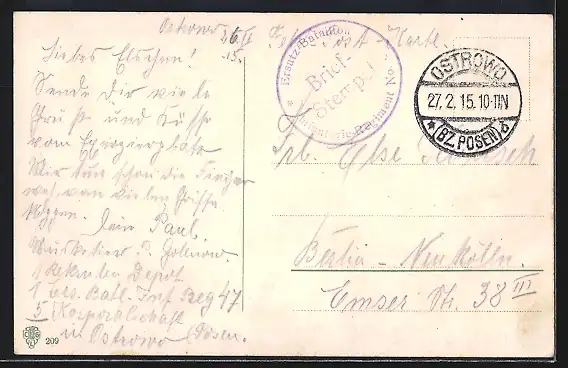 Ostrowo 26.II
15.
Liebes Elschen!
Sende Dir viele
Grüsse und Küsse
vom Exerzierplatz
Mir tun schon die Finger
weh, von vielen Griffe
kloppen.
Dein Paul.
Musketier P.
1 Rekruten Depot
1 Ers. Batl. Inf. Reg 47
5 Korporalschaft
in Ostrowo (Posen.
209
Feld-Post-Karte
Ersatz-Bataillon
Brief-
Stempel
Infanterie-Regiment No.
OSTROWO
27.2.15.10-11N
* (BZ. POSEN) b
Frl. Else
Berlin-Neukölln.
Emser Str. 38 III